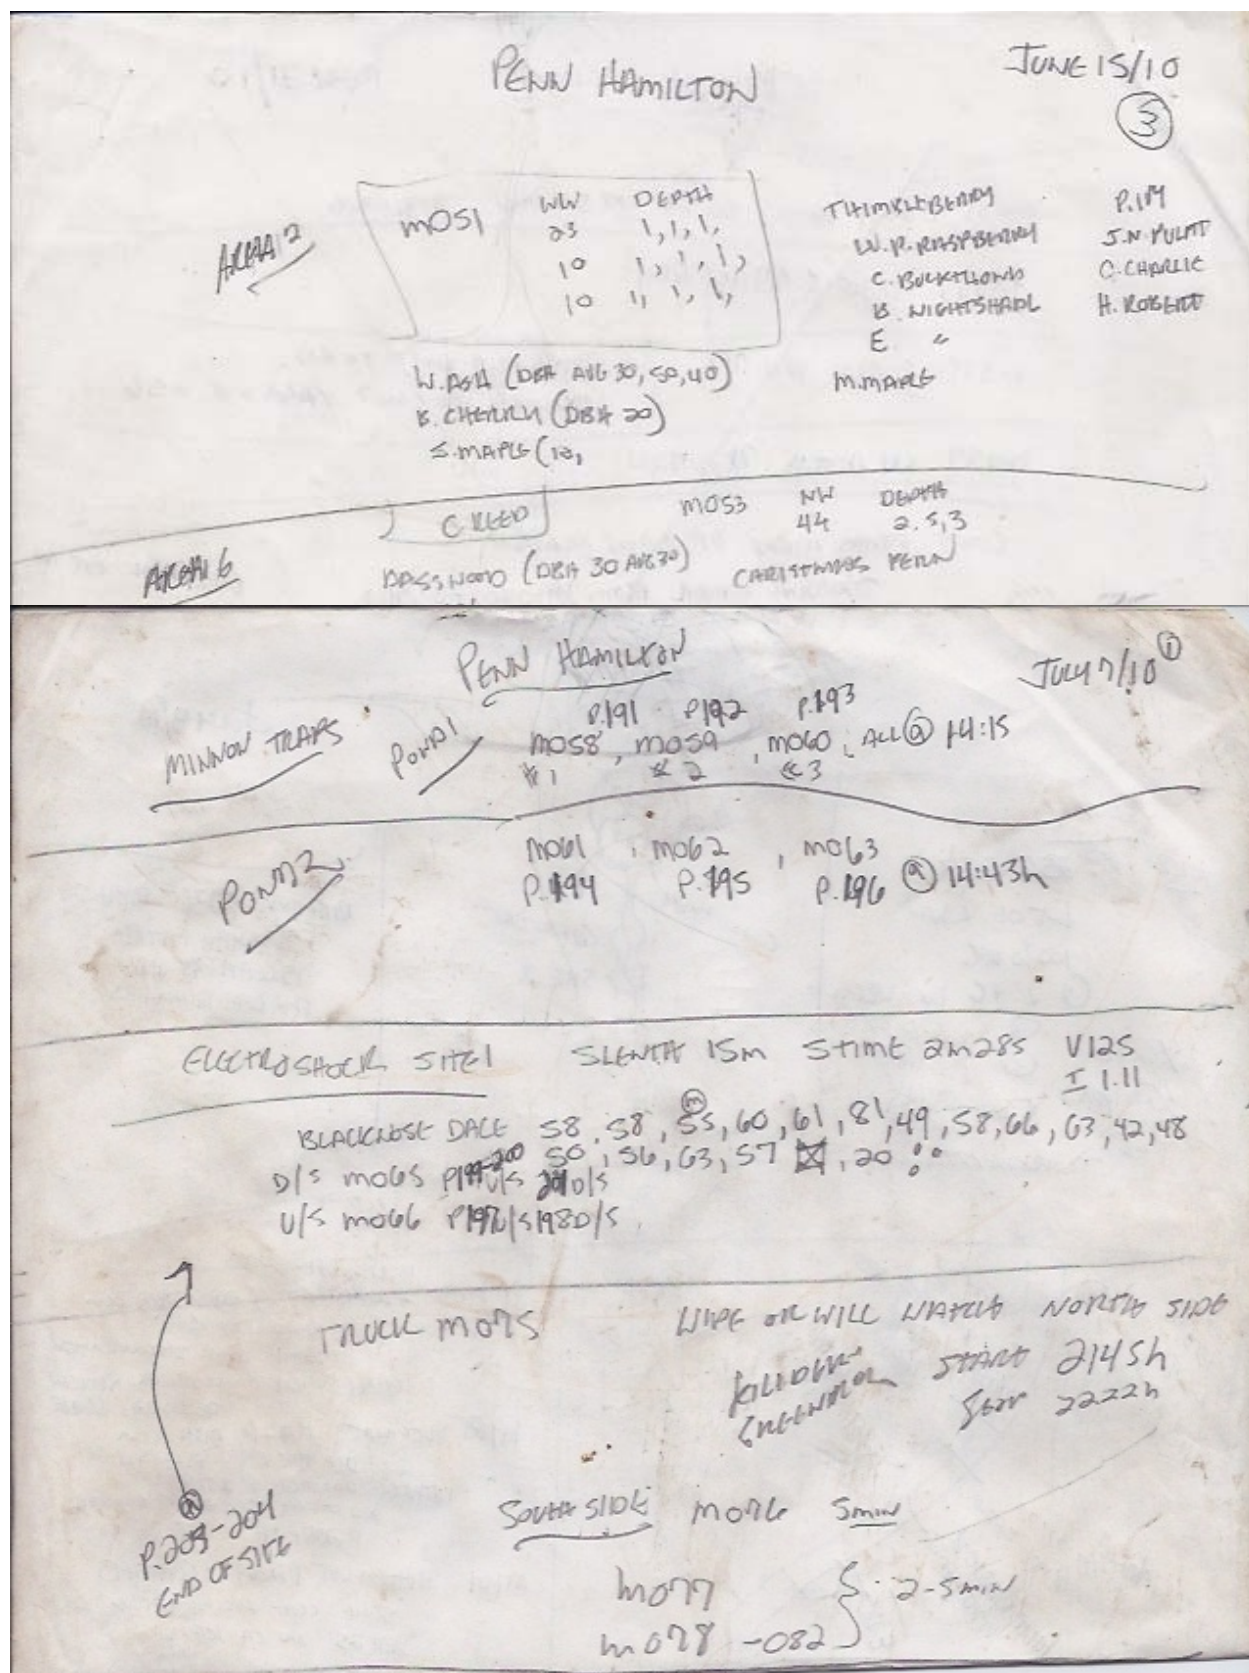 PENN HAMILTON
JUNE 15/10
3
AREA 2
MO51 WW DEPTH
23 1, 1, 1,
10 1, 1, 1,
10 1, 1, 1,
THIMBLEBERRY P.
W.P. RASPBERRY
C. BUCKTHORN C. CHARLIE
B. NIGHTSHADE H. ROBERT
E "
M.MAPLE
W. ASH (DBH AVG 30, 50, 40)
B. CHERRY (DBH 20)
S. MAPLE (12,
C REED MO53 WW DEPTH
44 2.5, 3
AREA 6
BASSWOOD (DBH 30 AVG 30) CHRISTMAS FERN
PENN HAMILTON
JULY 7/10 1
MINNOW TRAPS POND 1
P.191 P192 P.193
MO58, MO59, MO60, ALL @ 14:15
#1 #2 #3
POND 2
MO61, MO62, MO63
P.194 P.195 P.196 @ 14:43h
ELECTROSHOCK SITE 1 SLENTH 15m STIME 2m28s V125
I 1.11
BLACKNOSE DACE 58, 58, 55, 60, 61, 81, 49, 58, 66, 63, 42, 48
50, 56, 63, 57, 20
D/S MO65 P199-200 U/S 201 D/S
U/S MO66 P197U/S 198D/S
TRUCK MO75 WIPE OR WILL WATCH NORTH SIDE
KILLDEER START 2145h
GREENFROG STOP 2222h
P.203-204
END OF SITE
SOUTH SIDE MO76 5min
MO77
MO78 -082 } 2-5min